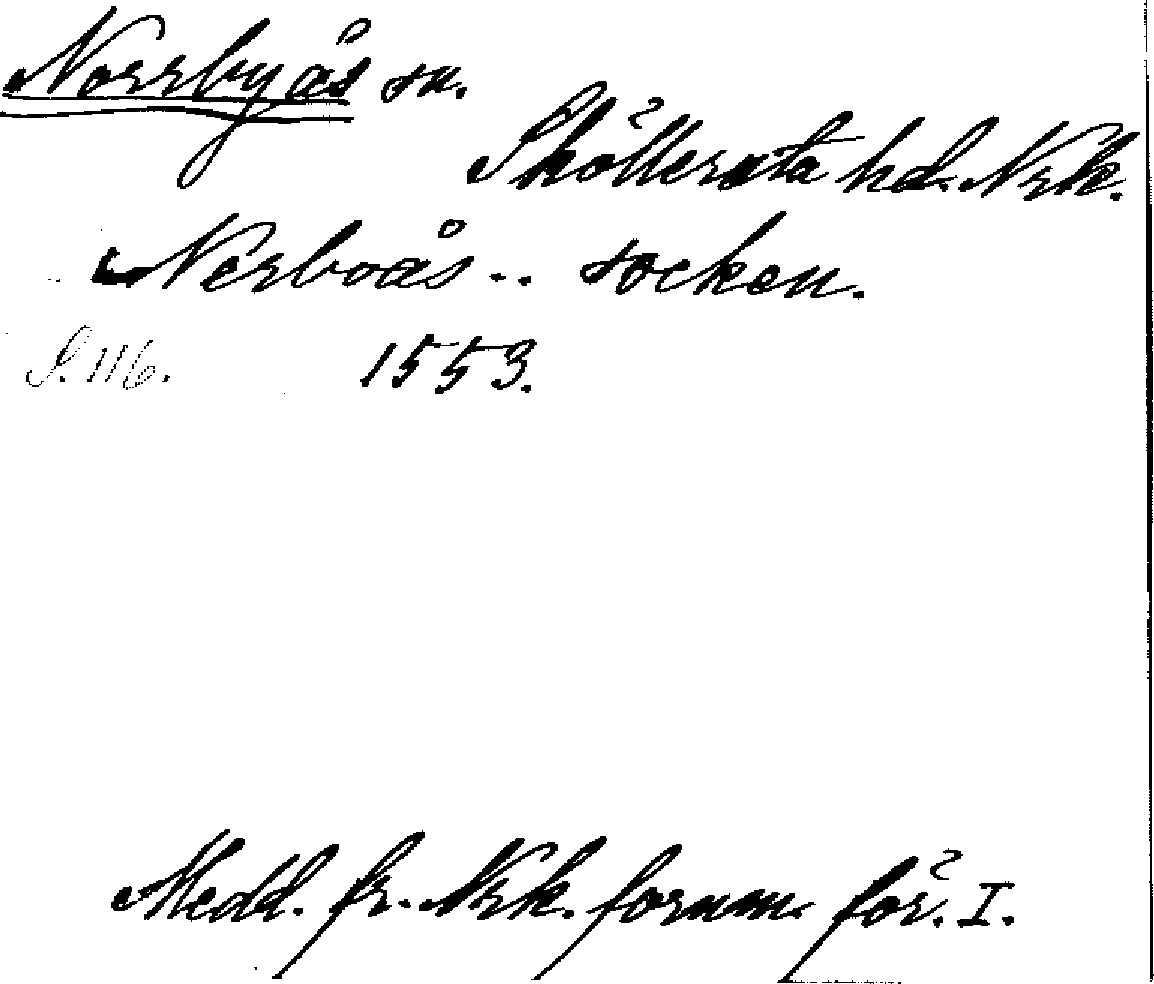 Norrbyås sn.
Sköllersta hd. Nrk.
Nerboås .. socken.
S. 116. 1553.
Medd. fr. Nrk. fornm. för. I.